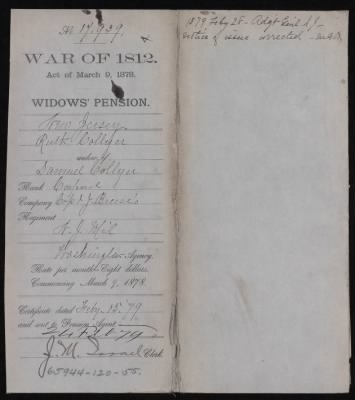 No 17,929
WAR OF 1812.
Act of March 9, 1878.
WIDOWS' PENSION.
New Jersey
Ruth Collyer
widow of
Samuel Collyer
Rank Corporal
Company Capt J.
Regiment
N. J. Mil
Washington Agency.
Rate per month Eight dollars.
Commencing March 9, 1878.
Certificate dated Feby. 15. 79
and sent to Pension Agent
79
J. M. Clerk
65944-120-55.
1879 Feby 28 - Adgt Genl N J -
notice of issue corrected -